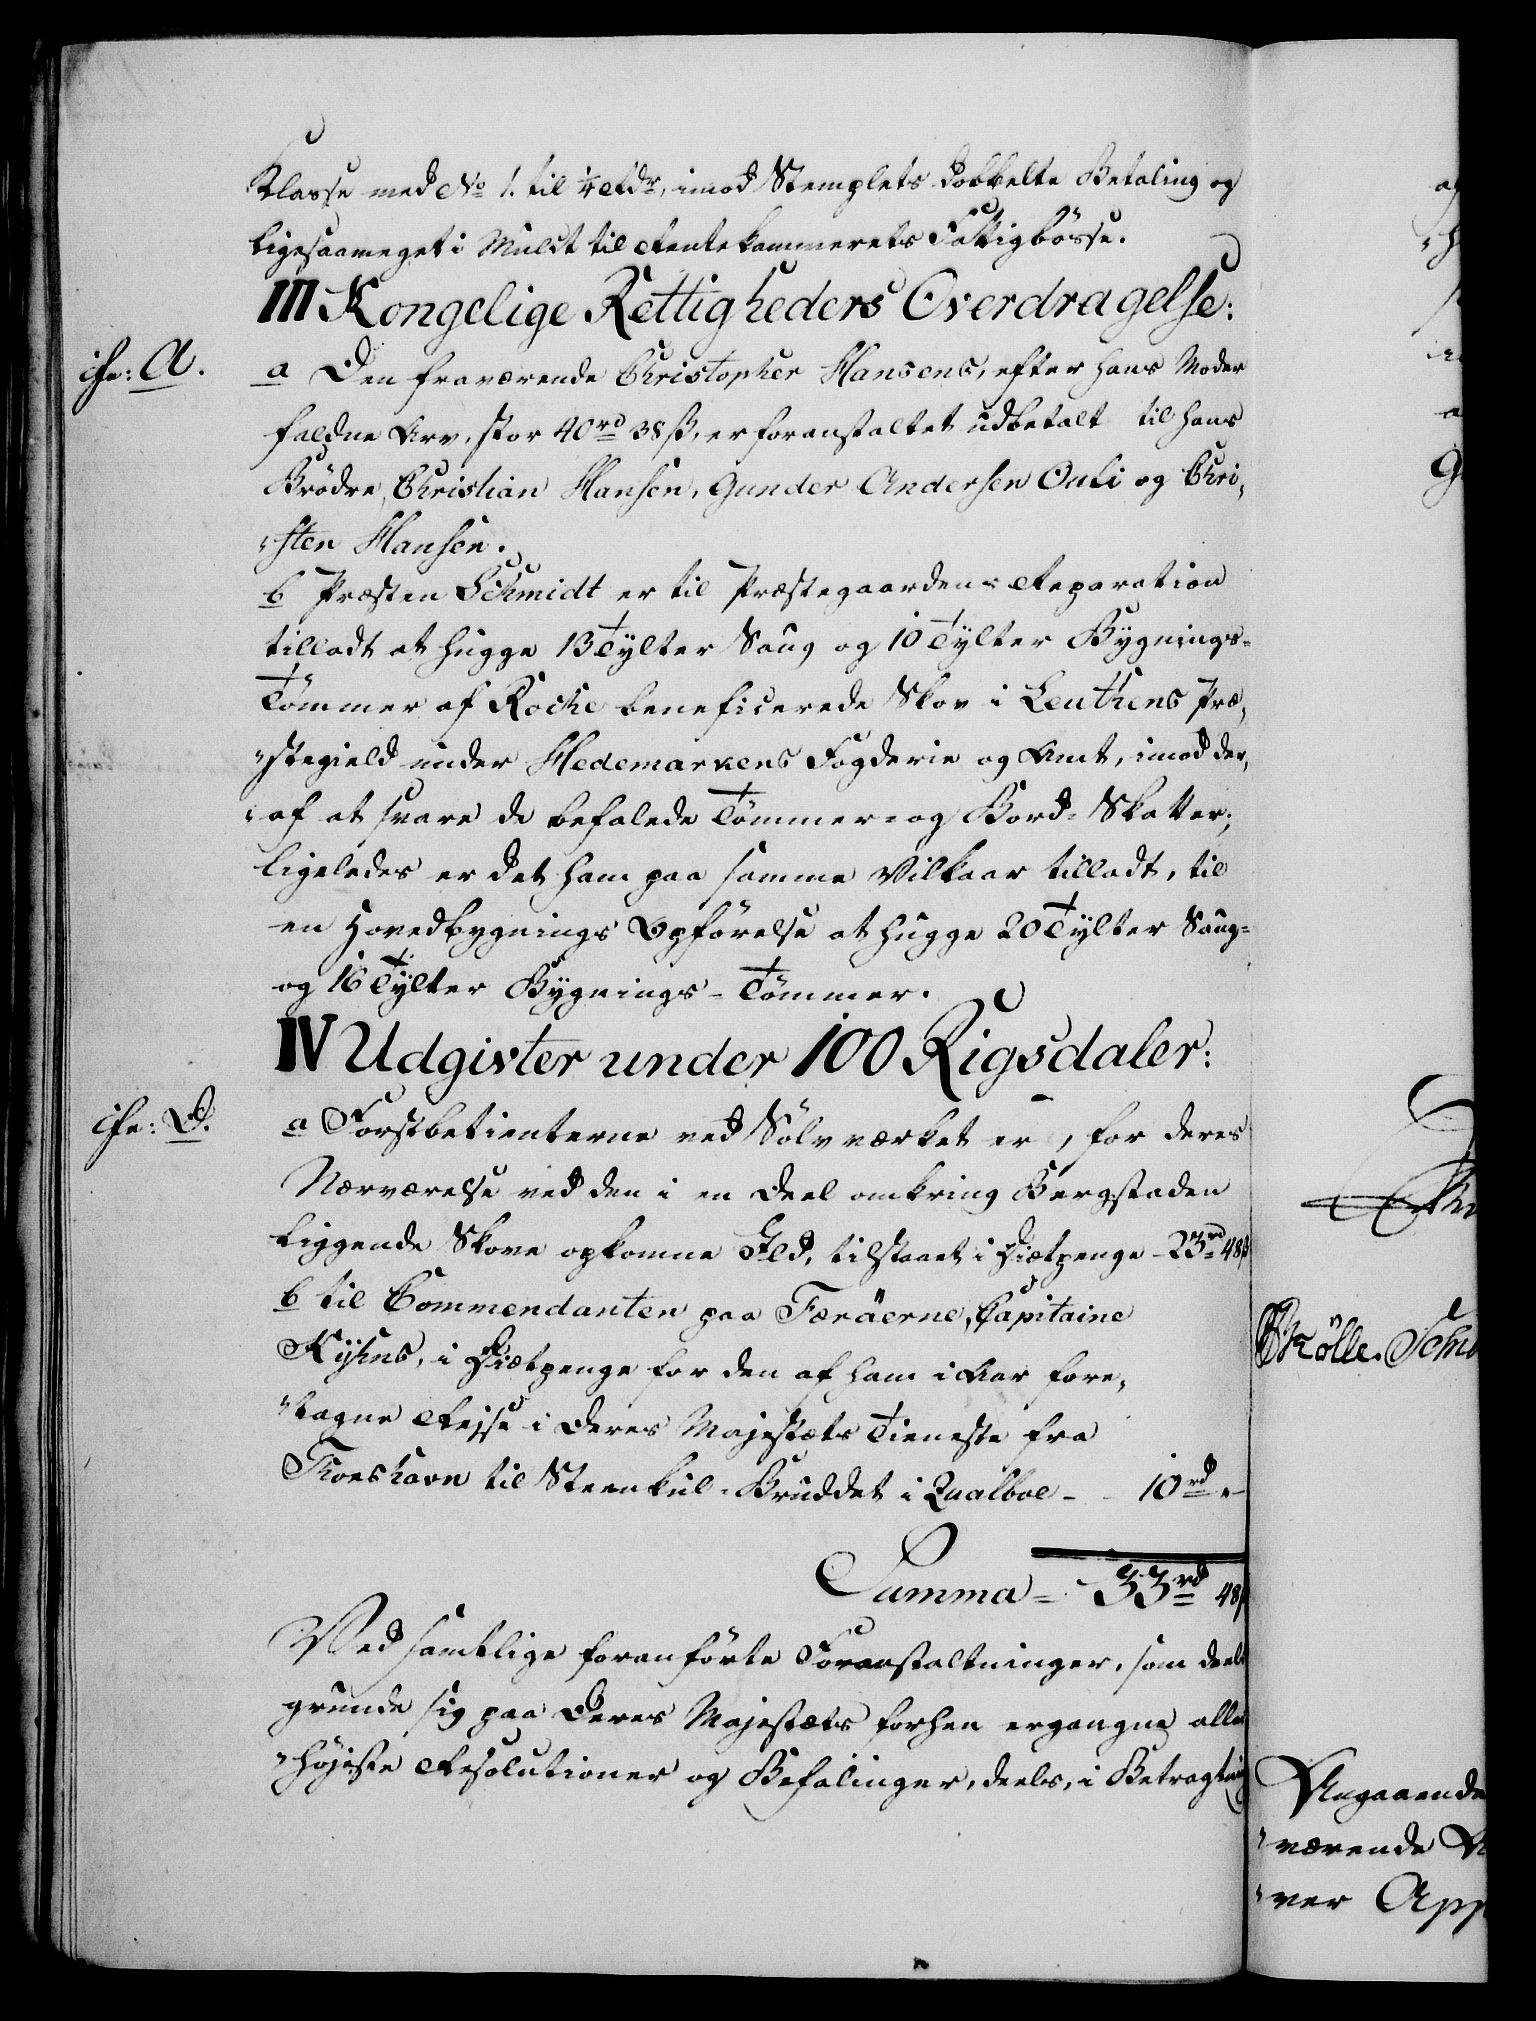 Klasse med No 1. til 1/4 Rdr, imod Stemplets dobbelte Betaling og
ligesaameget i Mulct til Rentekammerets Fattigbösse.
III Kongelige Rettigheders Overdragelse:
cfr: A.
a Den fraværende Christopher Hansens, efter hans Moder
faldne Arv, stor 40 rd 38 ß, er foranstaltet udbetalt til hans
Brödre, Christian Hansen, Gunder Andersen Outi og Chri„
„sten Hansen.
b Præsten Schmidt er til Præstegaardens Reparation
tilladt at hugge 13 Tylter Saug og 10 Tylter Bygnings-
Tömmer af Rocke beneficerede Skov i Leuthens Præ„
„stegield under Hedemarkens Fogderie og Amt, imod der„
„af at svare de befalede Tömmer- og Bord-Skatter;
ligeledes er det ham paa samme Vilkaar tilladt, til
en Hovedbygnings Opförelse at hugge 20 Tylter Saug-
og 16 Tylter Bygnings-Tömmer.
IV Udgivter under 100 Rigsdaler:
cfr: D.
a Forstbetienterne ved Sölvværket er, for deres
Nærværelse ved den i en Deel omkring Bergstaden
liggende Skove opkomne Ild, tilstaaet i Diætpenge - 23 rd 48 ß
b til Commendanten paa Færöerne, Capitaine
Ryhns, i Diætpenge for den af ham i Aar fore„
„tagne Rejse i Deres Majestæts Tieneste fra
Thorshavn til Steenkul-Bruddet i Qualboe - - 10 rd „
Summa = 33 rd 48 ß
Ved samtlige foranförte Foranstaltninger, som deels
grunde sig paa Deres Majestæts forhen ergangne aller
„höjeste Resolutioner og Befalinger, deels, i Betragtning
Skölle. Schm
Angaaende
„værende
„ver App